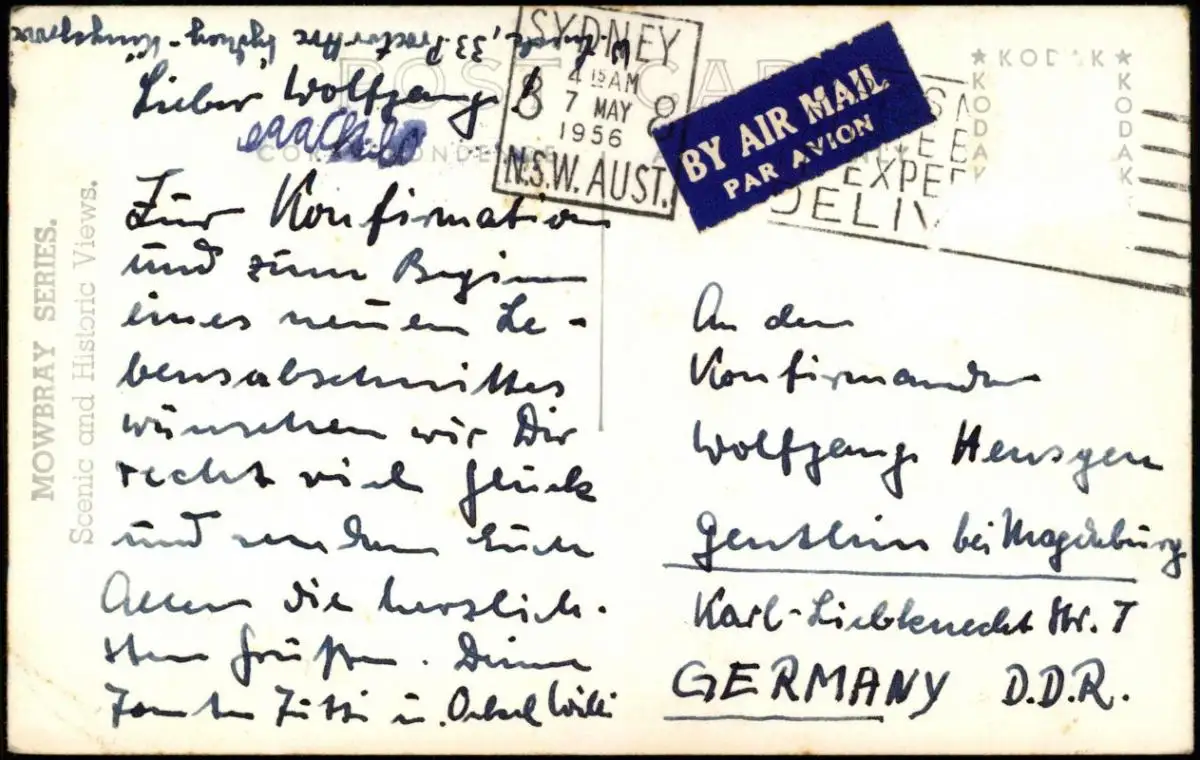 33 Proctor Ave Sydney - Kingsgrove
Lieber Wolfgang!
Zur Konfirmation
und zum Beginn
eines neuen Le-
bensabschnittes
wünschen wir Dir
recht viel Glück
und senden Euch
Allen die herzlich-
sten Grüßen. Deine
Tante u. Onkel Willi
MOWBRAY SERIES.
Scenic and Historic Views.
POST CARD
SYDNEY
4 15 AM
7 MAY
1956
N.S.W. AUST.
BY AIR MAIL
PAR AVION
KODAK
KODAK
KODAK
An den
Konfirmanden
Wolfgang Hensgen
Genthin bei Magdeburg
Karl-Liebknecht Str. 7
GERMANY D.D.R.